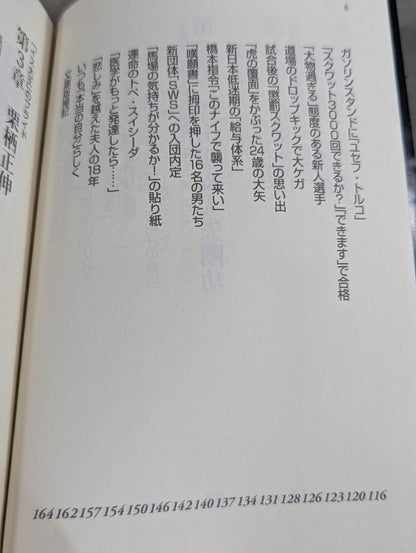 8
ガソリンスタンドに「ユセフ・トルコ」 116
「スクワット3000回できるか?」「できます」で合格 120
「大物過ぎる」態度のある新人選手 123
道場のドロップキックで大ケガ 126
試合後の「懲罰スクワット」の思い出 128
「虎の覆面」をかぶった24歳の大矢 131
新日本低迷期の「給与体系」 134
橋本指令「このナイフで襲って来い」 137
「嘆願書」に拇印を押した16名の男たち 140
新団体「SWS」への入団内定 142
「馬場の気持ちが分かるか!」の貼り紙 146
運命のトペ・スイシーダ 150
「医学がもっと発達したら……」 154
「悲しみ」を越えた夫人の18年 157
いつも「本当の自分」らしく 162
164
第3章 栗栖正伸